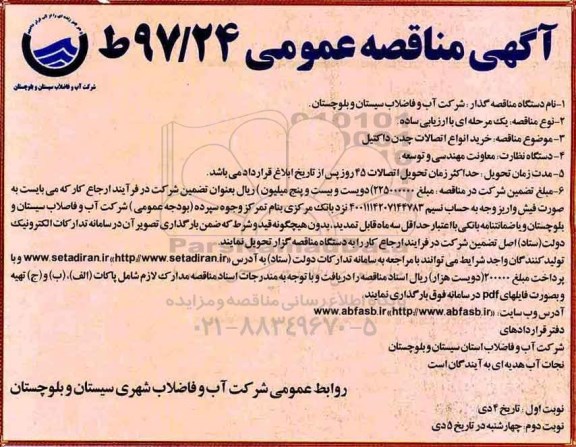 آگهی مناقصه عمومی ۹۷/۲۴ ط
شرکت آب و فاضلاب سیستان و بلوچستان
۱-نام دستگاه مناقصه گذار : شرکت آب و فاضلاب سیستان و بلوچستان.
۲-نوع مناقصه: یک مرحله ای با ارزیابی ساده
۳-موضوع مناقصه: خرید انواع اتصالات چدن داکتیل
۴-دستگاه نظارت: معاونت مهندسی و توسعه
۵-مدت زمان تحویل : حداکثر زمان تحویل اتصالات ۴۵ روز پس از تاریخ ابلاغ قرارداد می باشد.
۶-مبلغ تضمین شرکت در مناقصه : مبلغ ۲۲۵۰۰۰۰۰۰ (دویست و بیست و پنج میلیون) ریال بعنوان تضمین شرکت در فرآیند ارجاع کار که می بایست به
صورت فیش واریز وجه به حساب نسیم ۴۰۰۱۱۱۴۲۰۷۱۴۴۷۸۳ نزد بانک مرکزی بنام تمرکز وجوه سپرده (بودجه عمومی ) شرکت آب و فاضلاب سیستان و
بلوچستان و یا ضمانتنامه بانکی با اعتبار حداقل سه ماه قابل تمدید، بدون هیچگونه قید و شرط که ضمن بارگذاری تصویر آن در سامانه تدارکات الکترونیک
دولت (ستاد) اصل تضمین شرکت در فرایند ارجاع کار را به دستگاه مناقصه گزار تحویل نمایند
تولید کنندگان واجد شرایط می توانند با مراجعه به سامانه تدارکات دولت (ستاد) به آدرس «www.setadiran.ir«http://www.setadiran.ir و با
پرداخت مبلغ ۲۰۰۰۰۰ (دویست هزار) ریال اسناد مناقصه را دریافت و با توجه به مندرجات اسناد مناقصه مدارک لازم شامل پاکات (الف)، (ب) و (ج) تهیه
و بصورت فایلهای pdf در سامانه فوق بارگذاری نمایند.
آدرس وب سایت : «www.abfasb.ir«http://www.abfasb.ir
دفتر قراردادهای
شرکت آب و فاضلاب استان سیستان و بلوچستان
نجات آب هدیه ای به آیندگان است
روابط عمومی شرکت آب و فاضلاب شهری سیستان و بلوچستان
نوبت اول : تاریخ ۴ دی
نوبت دوم: چهارشنبه در تاریخ ۵ دی
پایگاه اطلاع رسانی مناقصه و مزایده
۰۲۱-۸۸۳۴۹۶۷۰-۵